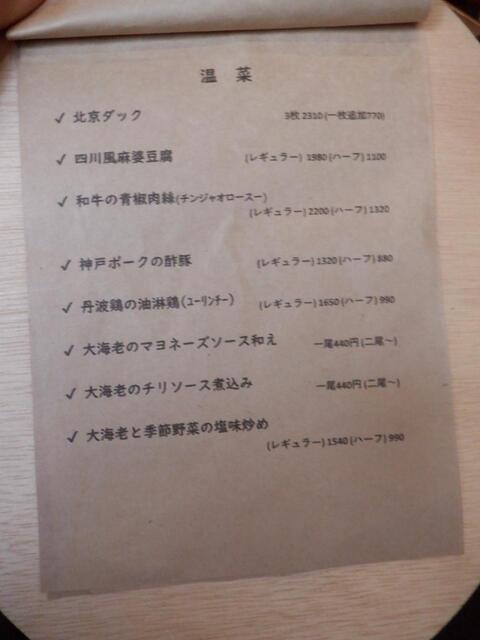 温 菜
✓ 北京ダック 3枚 2310 (一枚追加770)
✓ 四川風麻婆豆腐 (レギュラー) 1980 (ハーフ) 1100
✓ 和牛の青椒肉絲(チンジャオロースー)
(レギュラー) 2200 (ハーフ) 1320
✓ 神戸ポークの酢豚 (レギュラー) 1320 (ハーフ) 880
✓ 丹波鶏の油淋鶏(ユーリンチー) (レギュラー) 1650 (ハーフ) 990
✓ 大海老のマヨネーズソース和え 一尾440円 (二尾~)
✓ 大海老のチリソース煮込み 一尾440円 (二尾~)
✓ 大海老と季節野菜の塩味炒め
(レギュラー) 1540 (ハーフ) 990